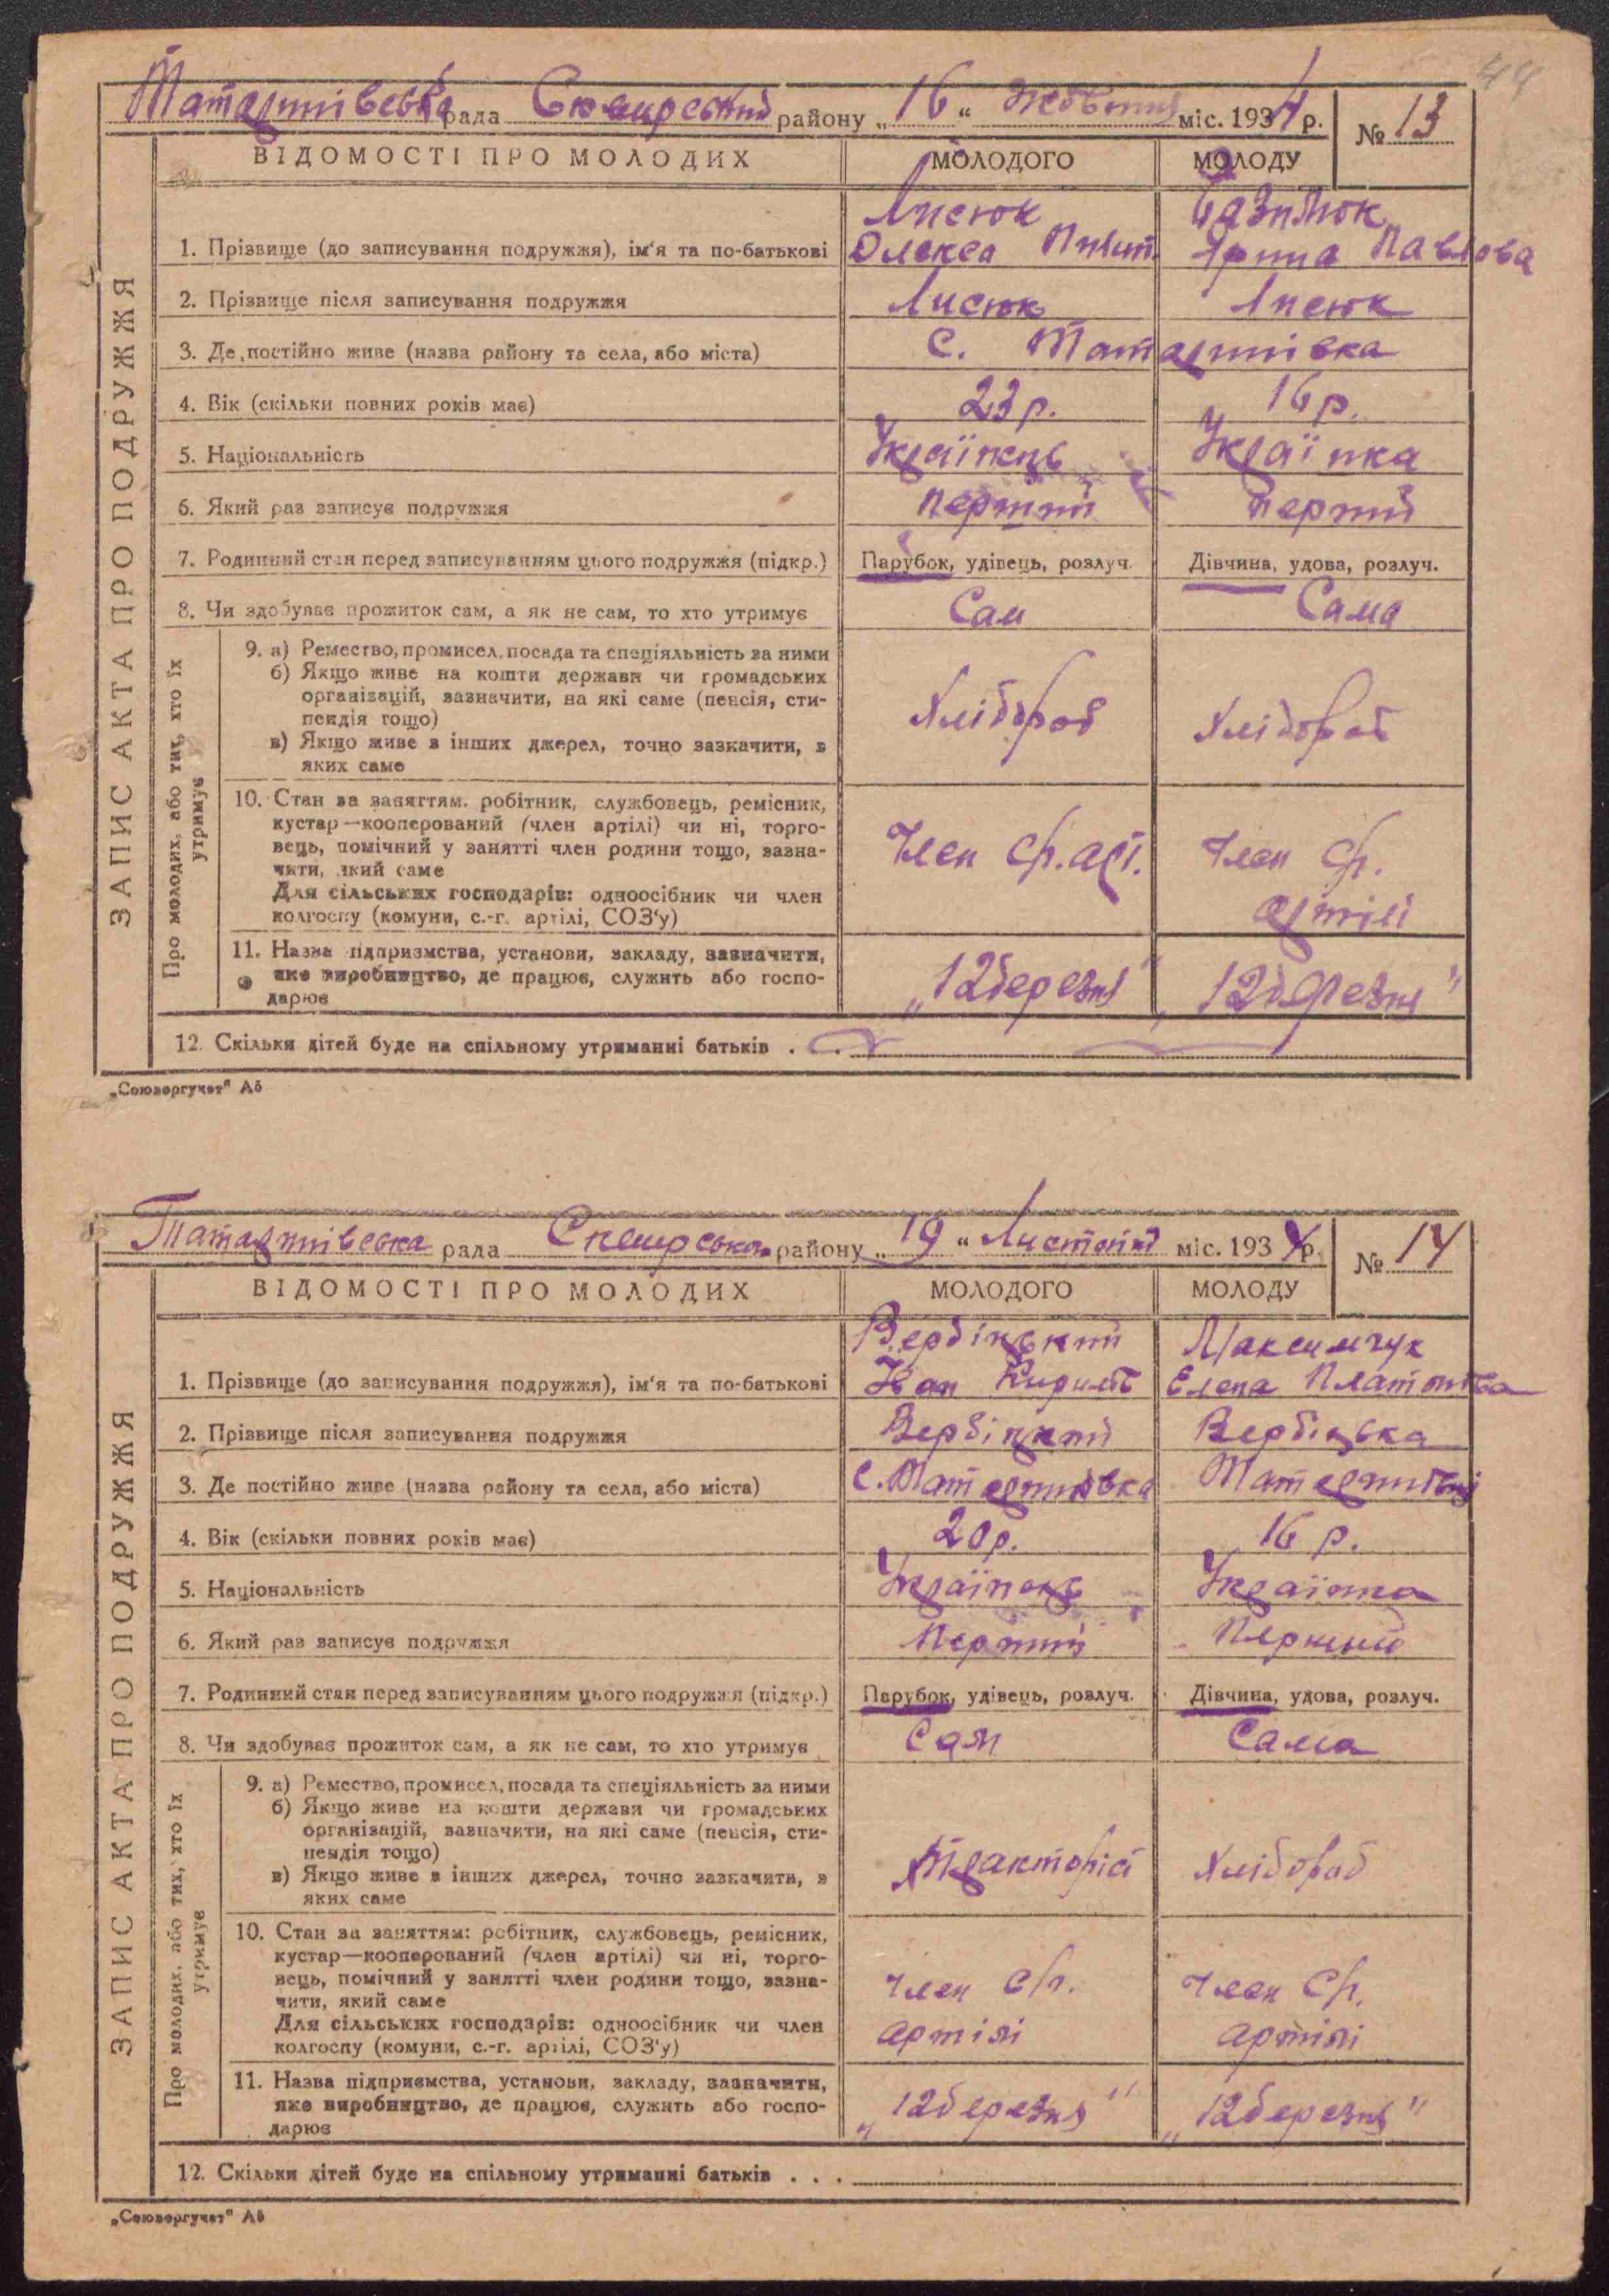 44
Татаринівська рада Сквирський району „ 16 “ Жовтня міс. 1934 р. № 13
ВІДОМОСТІ ПРО МОЛОДИХ МОЛОДОГО МОЛОДУ
ЗАПИС АКТА ПРО ПОДРУЖЖЯ
Лисюк
1. Прізвище (до записування подружжя), ім‘я та по-батькові Олекса Ярина Павлова
2. Прізвище після записування подружжя Лисюк Лисюк
3. Де постійно живе (назва району та села, або міста) с. Татаринівка
4. Вік (скільки повних років має) 23 р. 16 р.
5. Національність Українець Українка
6. Який раз записує подружжя перший перший
7. Родинний стан перед записуванням цього подружжя (підкр.) Парубок, удівець, розлуч. Дівчина, удова, розлуч.
8. Чи здобуває прожиток сам, а як не сам, то хто утримує Сам Сама
Про молодих, або тих, хто їх утримує
9. а) Ремество, промисел, посада та спеціяльність за ними
б) Якщо живе на кошти держави чи громадських
організацій, зазначити, на які саме (пенсія, сти-
пендія тощо) Хлібороб Хлібороб
в) Якщо живе з інших джерел, точно зазначити, з
яких саме
10. Стан за заняттям: робітник, службовець, ремісник,
кустар—кооперований (член артілі) чи ні, торго-
вець, помічний у занятті член родини тощо, зазна- Член с/г. арт. Член с/г.
чити, який саме
Для сільських господарів: одноосібник чи член артілі
колгоспу (комуни, с.-г. артілі, СОЗ‘у)
11. Назва підприємства, установи, закладу, зазначити,
яке виробництво, де працює, служить або госпо- „12 березня“ „12 березня“
дарює
12. Скільки дітей буде на спільному утриманні батьків . . .
„Союзоргучет“ Аб
Татаринівська рада Сквирська району „ 19 “ Листопад міс. 1934 р. № 14
ВІДОМОСТІ ПРО МОЛОДИХ МОЛОДОГО МОЛОДУ
ЗАПИС АКТА ПРО ПОДРУЖЖЯ
Вербіцький Максимчук
1. Прізвище (до записування подружжя), ім‘я та по-батькові Іван Кирилів Елена Платонова
2. Прізвище після записування подружжя Вербіцкий Вербіцька
3. Де постійно живе (назва району та села, або міста) с. Татаринівка Татаринівці
4. Вік (скільки повних років має) 20 р. 16 р.
5. Національність Українець Українка
6. Який раз записує подружжя Перший Перший
7. Родинний стан перед записуванням цього подружжя (підкр.) Парубок, удівець, розлуч. Дівчина, удова, розлуч.
8. Чи здобуває прожиток сам, а як не сам, то хто утримує Сам Сама
Про молодих, або тих, хто їх утримує
9. а) Ремество, промисел, посада та спеціяльність за ними
б) Якщо живе на кошти держави чи громадських
організацій, зазначити, на які саме (пенсія, сти-
пендія тощо) Тракторіст Хлібороб
в) Якщо живе з інших джерел, точно зазначити, з
яких саме
10. Стан за заняттям: робітник, службовець, ремісник,
кустар—кооперований (член артілі) чи ні, торго-
вець, помічний у занятті член родини тощо, зазна- Член с/г. Член с/г.
чити, який саме
Для сільських господарів: одноосібник чи член артілі артілі
колгоспу (комуни, с.-г. артілі, СОЗ‘у)
11. Назва підприємства, установи, закладу, зазначити,
яке виробництво, де працює, служить або госпо- „12 березня“ „12 березня“
дарює
12. Скільки дітей буде на спільному утриманні батьків . . .
„Союзоргучет“ Аб